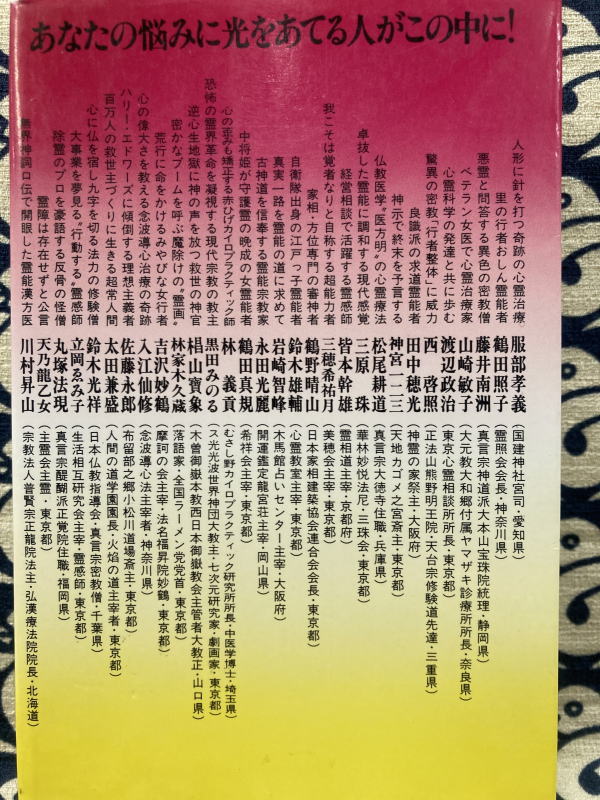 あなたの悩みに光をあてる人がこの中に!
人形に針を打つ奇跡の心霊治療 服部孝義（国建神社宮司・愛知県）
里の行者おしん霊能者 鶴田照子（霊照会会長・神奈川県）
悪霊と問答する異色の密教僧 藤井南洲（真言宗神道派大本山宝珠院統理・静岡県）
ベテラン女医で心霊治療家 山崎敏子（大元教大和郷付属ヤマザキ診療所所長・奈良県）
心霊科学の発達と共に歩む 渡辺政治（東京心霊相談所所長・東京都）
驚異の密教〝行者整体〟に威力 西啓照（正法山熊野明王院・天台宗修験道先達・三重県）
良識派の求道霊能者 田中穂光（神霊の家祭主・大阪府）
神示で終末を予言する 神宮一二三（天地カゴメ之宮斎主・東京都）
仏教医学〝医方明〟の心霊療法 松尾耕道（真言宗大徳寺住職・兵庫県）
卓抜した霊能に調和する現代感覚 三原珠（華林妙悦法尼・三珠会・東京都）
経営相談で活躍する霊感師 皆本幹雄（霊相道主宰・京都府）
我こそは覚者なりと自称する超能力者 三穂希祐月（美穂会主宰・東京都）
家相・方位専門の審神者 鶴野晴山（日本家相建築協会連合会会長・東京都）
自衛隊出身の江戸っ子霊能者 鈴木雄輔（心霊教室主宰・東京都）
真実一路を霊能の道に求めて 岩崎智峰（木馬館占いセンター主宰・大阪府）
古神道を信奉する霊能宗教家 永田光麗（開運鑑定龍宮荘主宰・岡山県）
中将姫が守護霊の晩成の女霊能者 鶴田真規（希祥会主宰・東京都）
心の歪みも矯正する赤ひげカイロプラクティック師 林義貢（むさし野カイロプラクティック研究所所長・中医学博士・埼玉県）
恐怖の霊界革命を凝視する現代宗教の教主 黒田みのる（ス光光波世界神団大教主・七次元研究家・劇画家・東京都）
逆心生地獄に神の声を放つ救世の神官 椙山寶象（木曽御嶽本教西日本御嶽教会主管者大教正・山口県）
密かなブームを呼ぶ魔除けの〝霊画〟 林家木久蔵（落語家・全国ラーメン党党首・東京都）
荒行に命をかけるみやびな女行者 吉沢妙鶴（摩訶の会主宰・法名福昇院妙鶴・東京都）
心の偉大さを教える念波導心治療の奇跡 入江仙修（念波導心法主宰者・神奈川県）
ハリー・エドワーズに傾倒する理想主義者 佐藤永郎（布留部之郷小松川道場斎主・東京都）
百万人の救世主づくりに生きる超常人間 太田兼盛（人間の道学園園長・火焔の道主宰者・東京都）
心に仏を宿し九字を切る法力の修験僧 鈴木光祥（日本仏教指導会・真言宗密教僧・千葉県）
大事業を夢見る〝行動する〟霊感師 立岡ゑみ子（生活相互研究会主宰・霊感師・東京都）
除霊のプロを豪語する反骨の怪僧 丸塚法現（真言宗醍醐派正覚院住職・福岡県）
霊障は存在せずと公言 天乃龍乙女（主霊会主霊・東京都）
無界神詞ロ伝で開眼した霊能漢方医 川村昇山（宗教法人普賢宗正龍院法主・弘漢療法院院長・北海道）